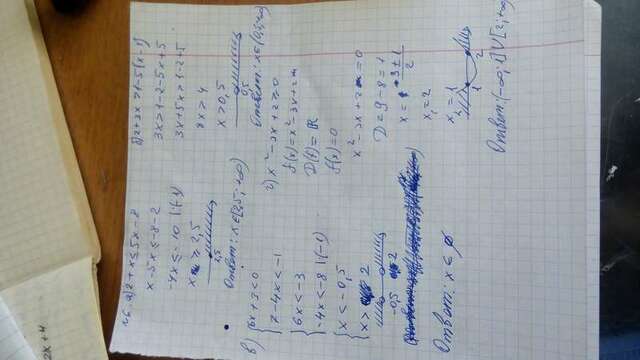 №6. а) 2+x≤5x-8
x-5x≤-8-2
-4x≤-10 |:(-4)
x ≥ 2,5
2,5
Ответ: x∈[2,5;+∞)
б) 2+3x>1-5(x-1)
3x>1-2-5x+5
3x+5x>1-2+5
8x>4
x>0,5
0,5
Ответ: x∈(0,5;+∞)
в) {6x+3<0
{7-4x<-1
{6x<-3
{-4x<-8 |(-1)
{x<-0,5
{x> 2
-0,5 2
Ответ: x∈∅
г) x²-3x+2≥0
f(x)=x²-3x+2
D(f)=R
f(x)=0
x²-3x+2=0
D=9-8=1
x = 3±1/2
x₁=2
x₂=1
1 2
Ответ: (-∞;1]∪[2;+∞)
2x+4